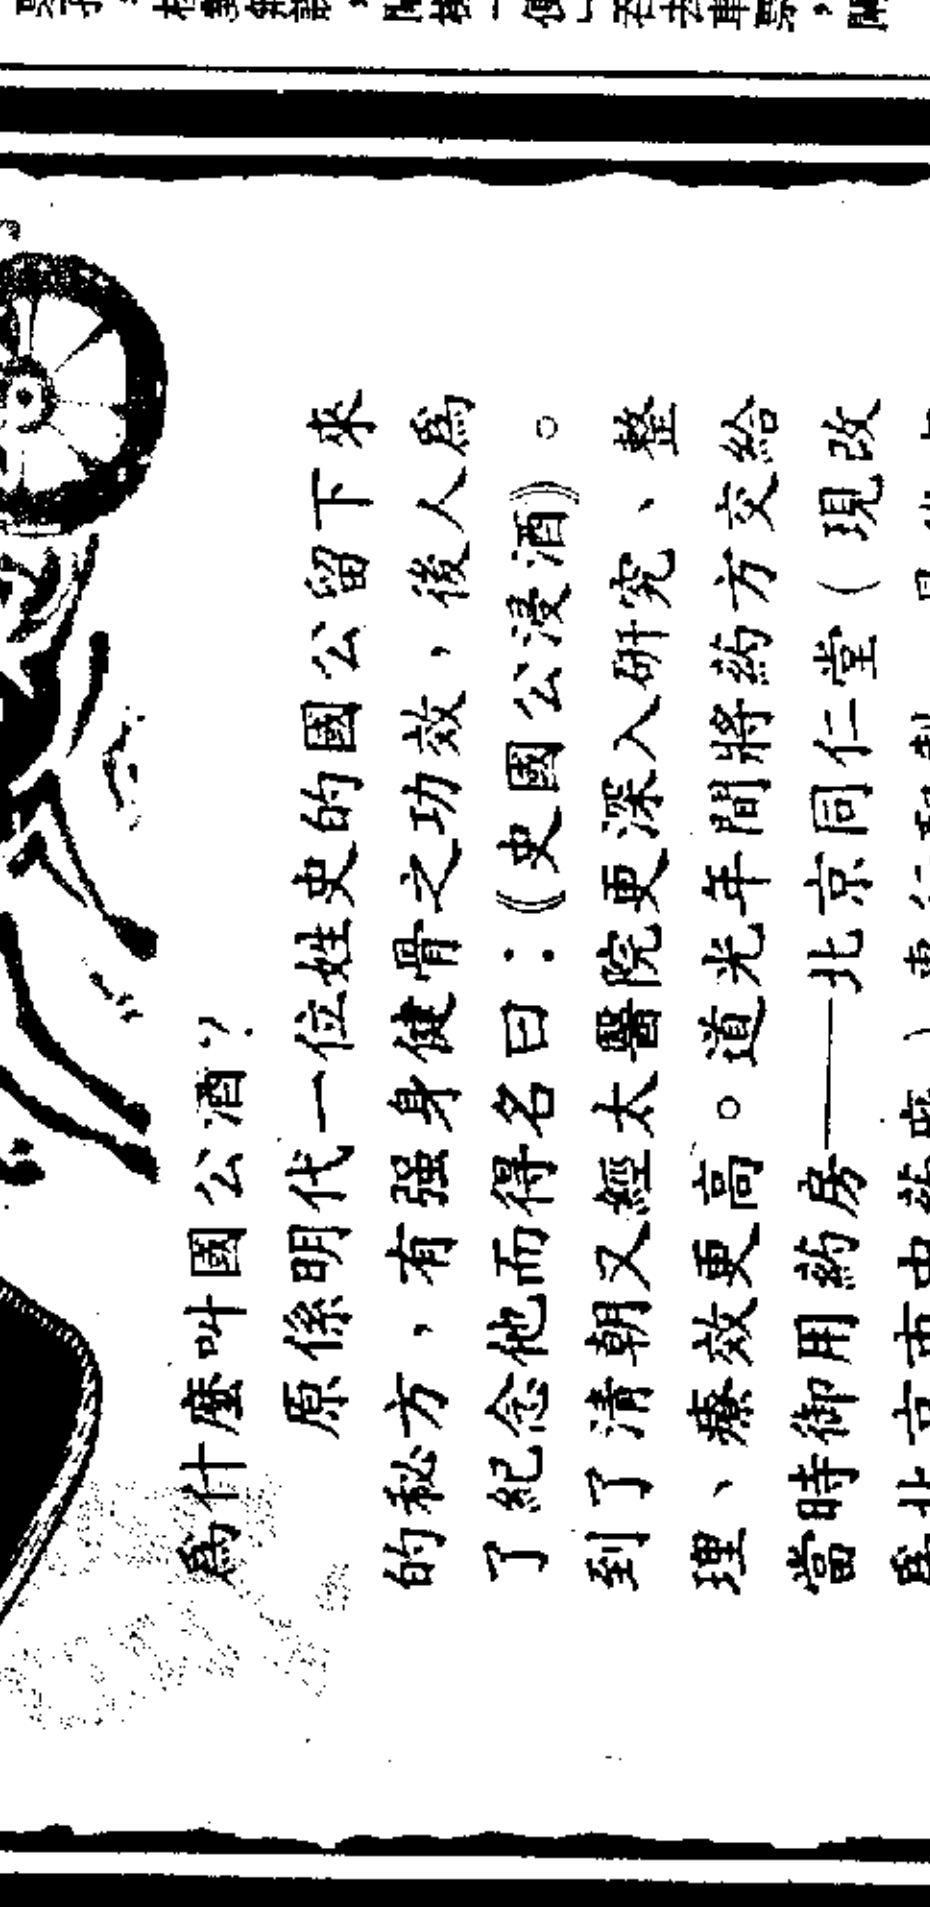 爲什麼叫國公酒？
原係明代一位姓史的國公留下來
的秘方，有强身健骨之功效，後人爲
了紀念他而得名曰：《史國公浸酒》。
到了清朝又經太醫院更深入研究、整
理、療效更高。道光年間將葯方交給
當時御用葯房——北京同仁堂（現改
爲北京市中葯